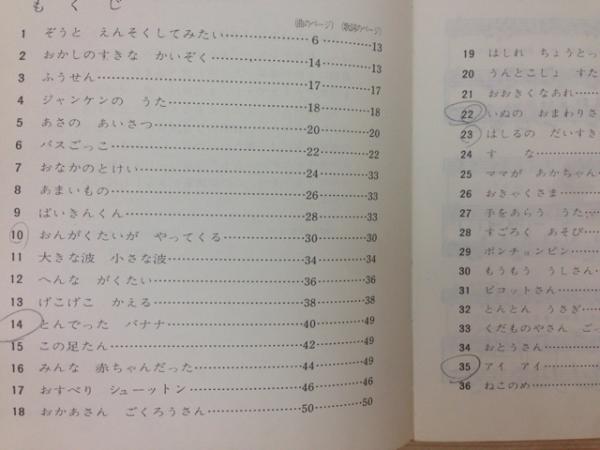 もくじ
(曲のページ) (歌詞のページ)
1 ぞうと えんそくしてみたい……6……13
2 おかしのすきな かいぞく……14……13
3 ふうせん……17……17
4 ジャンケンの うた……18……18
5 あさの あいさつ……20……20
6 バスごっこ……22……22
7 おなかのとけい……24……33
8 あまいもの……26……33
9 ばいきんくん……28……33
10 おんがくたいが やってくる……30……30
11 大きな波 小さな波……34……34
12 へんな がくたい……36……36
13 げこげこ かえる……38……38
14 とんでった バナナ……40……49
15 この足たん……42……49
16 みんな 赤ちゃんだった……44……49
17 おすべり シューットン……46……46
18 おかあさん ごくろうさん……50……50
19 はしれ ちょうとっ
20 うんとこしょ すた
21 おおきくなあれ……
22 いぬの おまわりさ
23 はしるの だいすき
24 す な……
25 ママが あかちゃん
26 おきゃくさま……
27 手をあらう うた……
28 すごろく あそび……
29 ポンチョンピン……
30 もうもう うしさん
31 ピコットさん……
32 とんとん うさぎ……
33 くだものやさん ご
34 おとうさん……
35 アイ アイ……
36 ねこのめ……